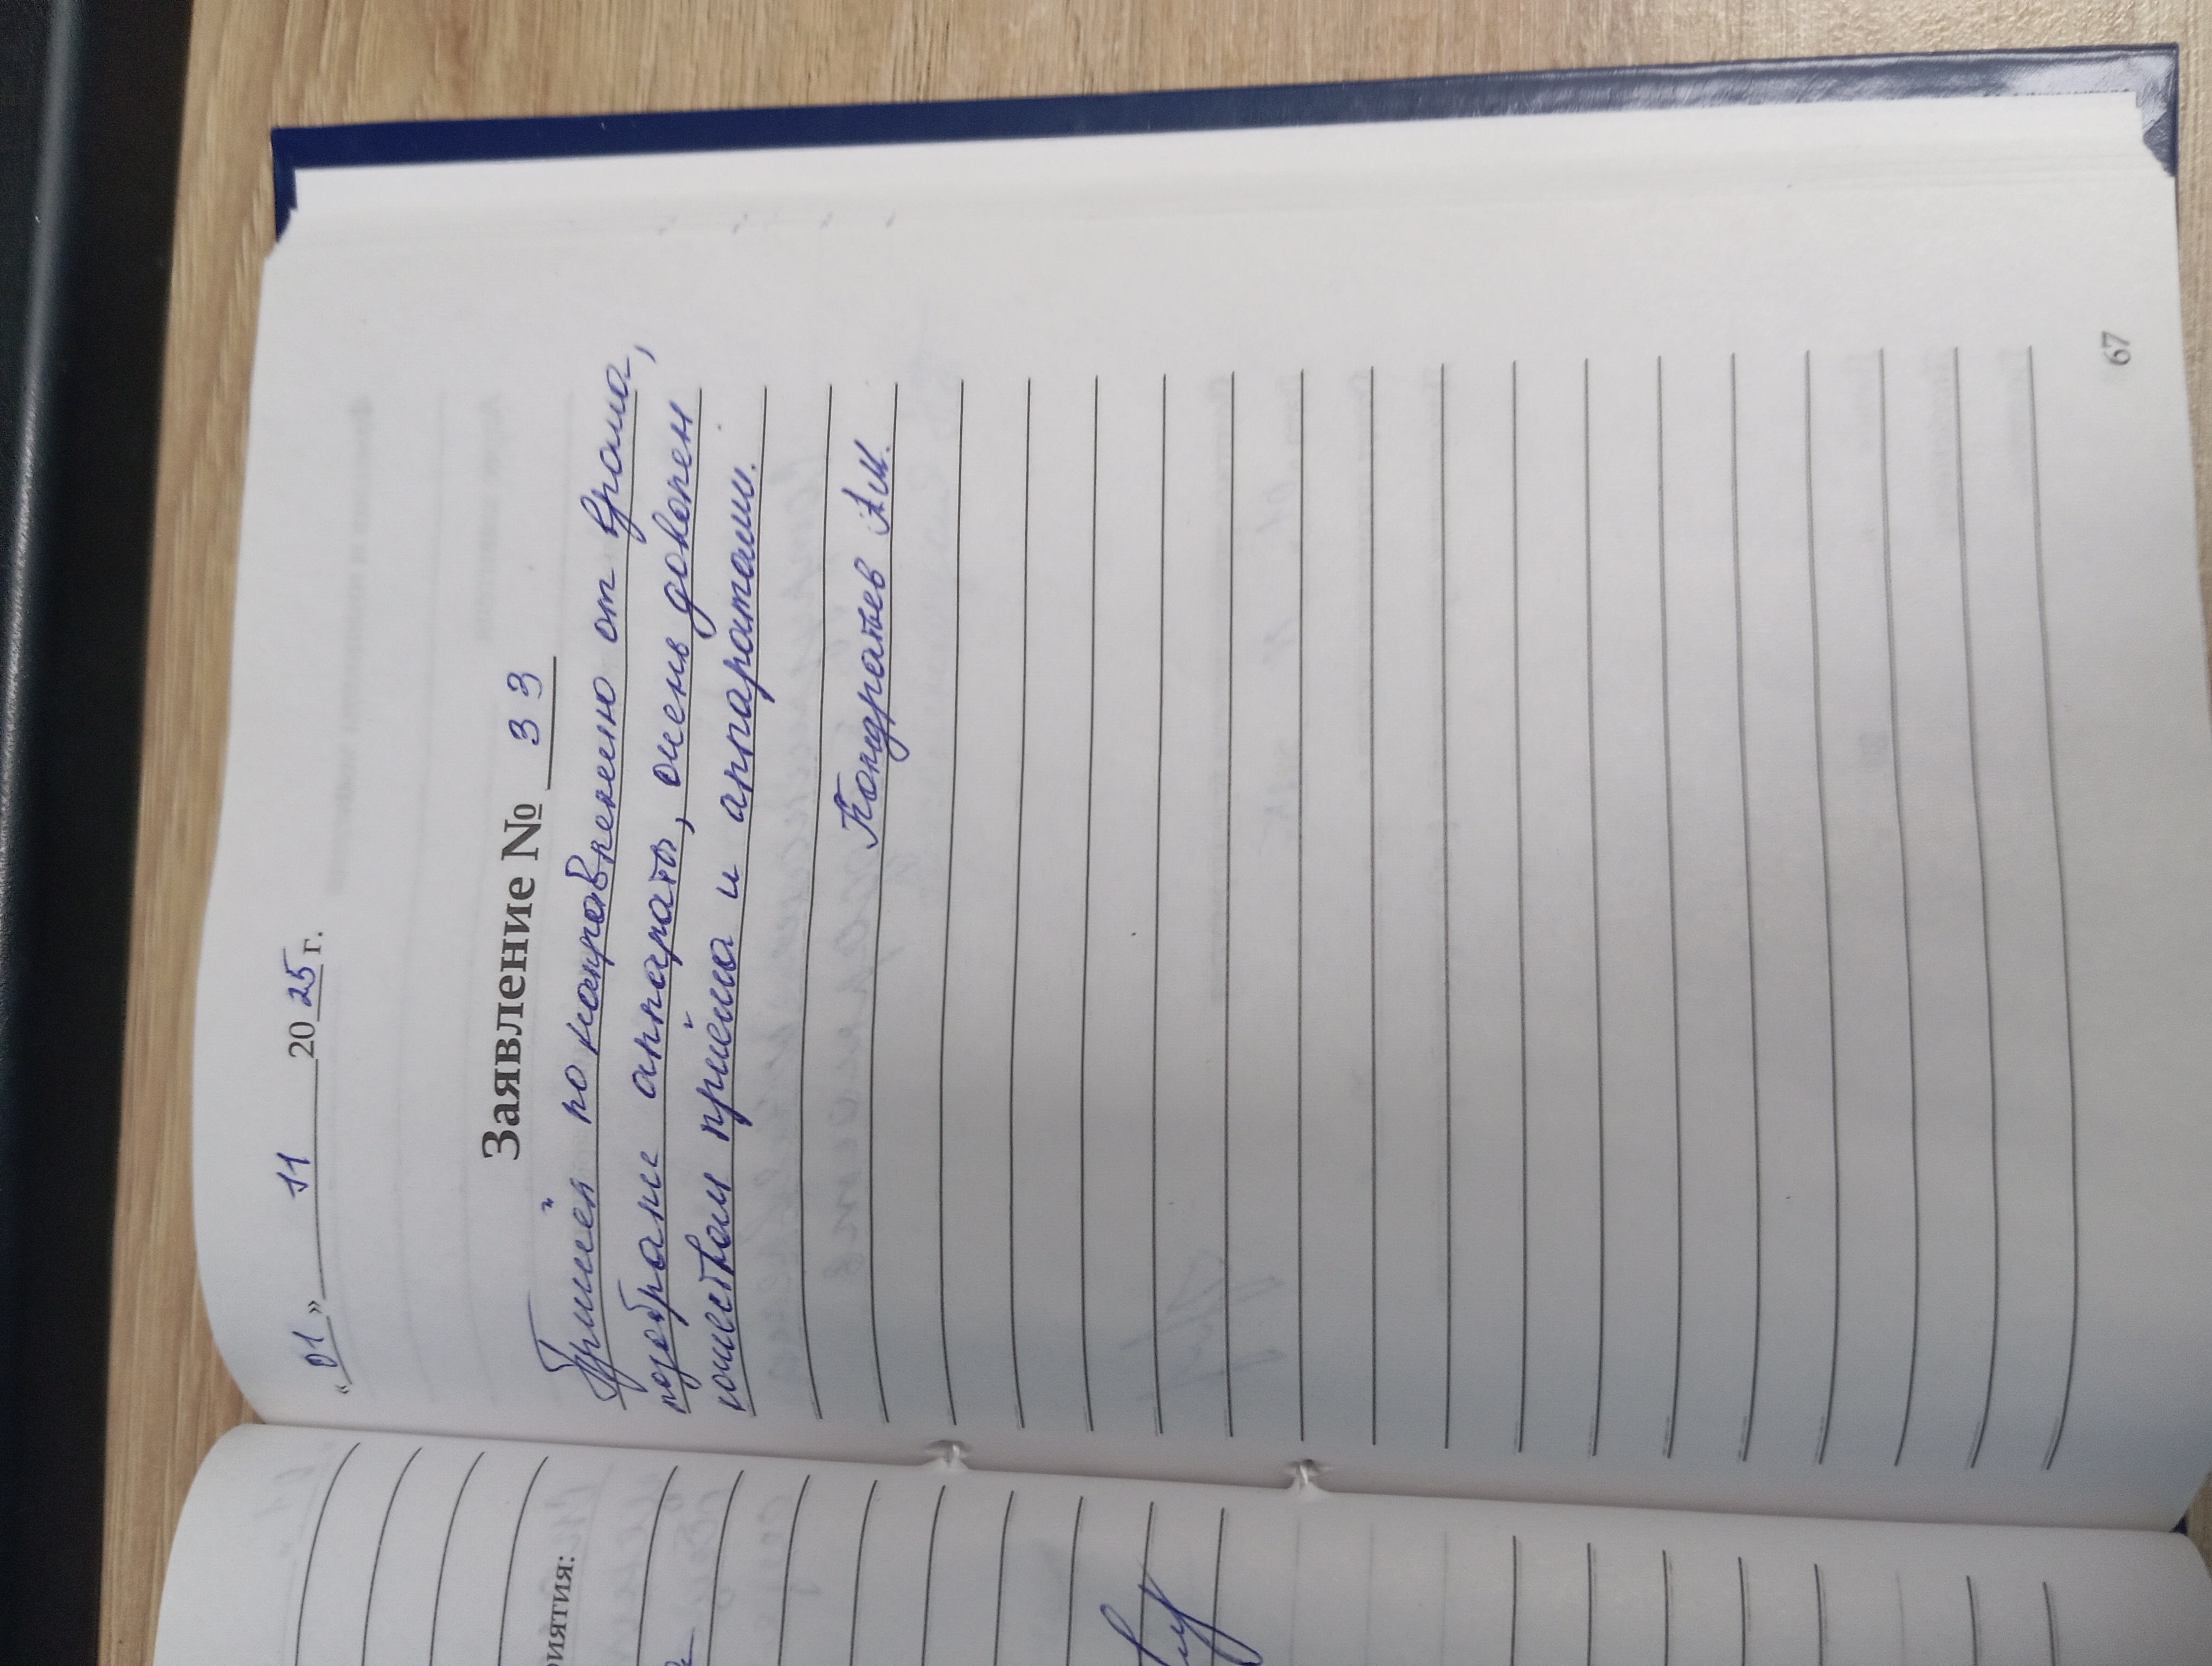 «01» 11 2025 г.
Заявление № 33
Пришёл по направлению от врача,
подбрали аппараты, очень доволен
качеством приёма и аппаратами.
Кондратьев А.И.
67
риятия: